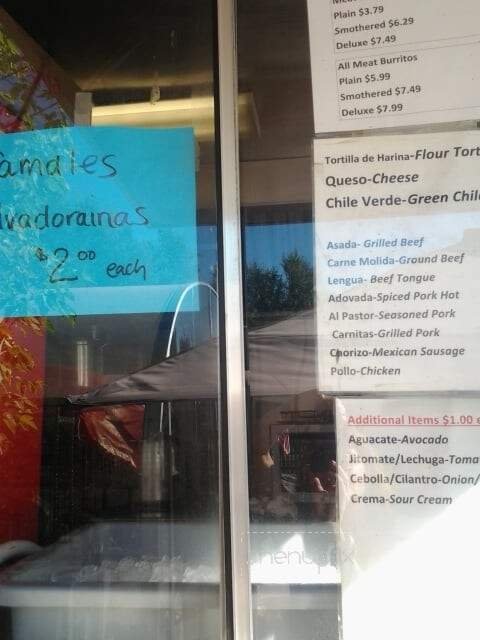 amales
lvadorainas
$2.00 each
Plain $3.79
Smothered $6.29
Deluxe $7.49
All Meat Burritos
Plain $5.99
Smothered $7.49
Deluxe $7.99
Tortilla de Harina-Flour Tort
Queso-Cheese
Chile Verde-Green Chil
Asada- Grilled Beef
Carne Molida-Ground Beef
Lengua- Beef Tongue
Adovada-Spiced Pork Hot
Al Pastor-Seasoned Pork
Carnitas-Grilled Pork
Chorizo-Mexican Sausage
Pollo-Chicken
Additional Items $1.00 e
Aguacate-Avocado
Jitomate/Lechuga-Toma
Cebolla/Cilantro-Onion/
Crema-Sour Cream
menupix